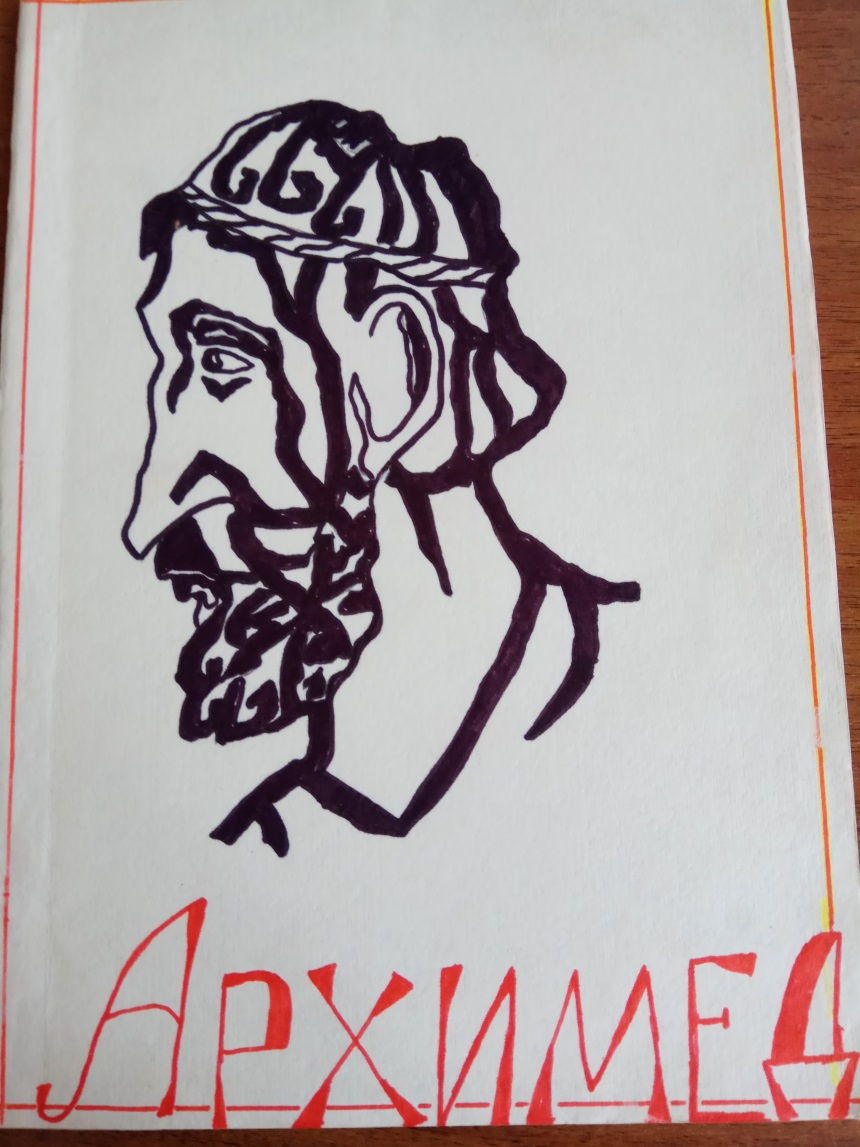 Архимед